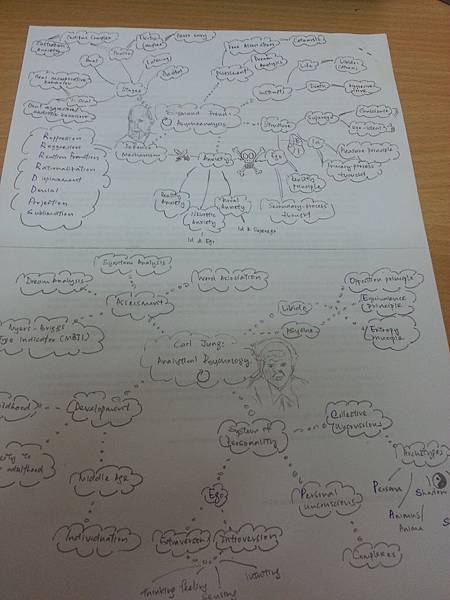 Oedipus Complex
Castration
Anxiety
Phallic
Anal
Latency
Genital
Oral
Stages
Free Association
Catharsis
Dream
Analysis
Assessment
Instincts
Life
Libido
Death
Aggressive
drive
Sigmund Freud:
Psychoanalysis
Structure
Superego
Conscience
Ego-ideal
Id
Pleasure Principle
Primary-process
thought
Ego
Reality
Principle
Secondary-process
thought
Defence
Mechanisms
Repression
Regression
Reaction Formation
Rationalization
Displacement
Denial
Projection
Sublimation
Anxiety
Reality
Anxiety
Neurotic
Anxiety
Id & Ego
Moral
Anxiety
Id & Superego
Symptom Analysis
Dream Analysis
Word Association
Assessment
Myers-Briggs
Type Indicator (MBTI)
Carl Jung:
Analytical Psychology
Libido
Psyche
Opposition principle
Equivalence
Principle
Entropy
Principle
Development
Childhood
Middle Age
Individuation
System of
Personality
Collective
Unconscious
Archetypes
Persona
Animus/
Anima
Shadow
Personal
unconscious
Complexes
Ego
Extraversion
Introversion
Thinking
Feeling
Sensing
Intuiting